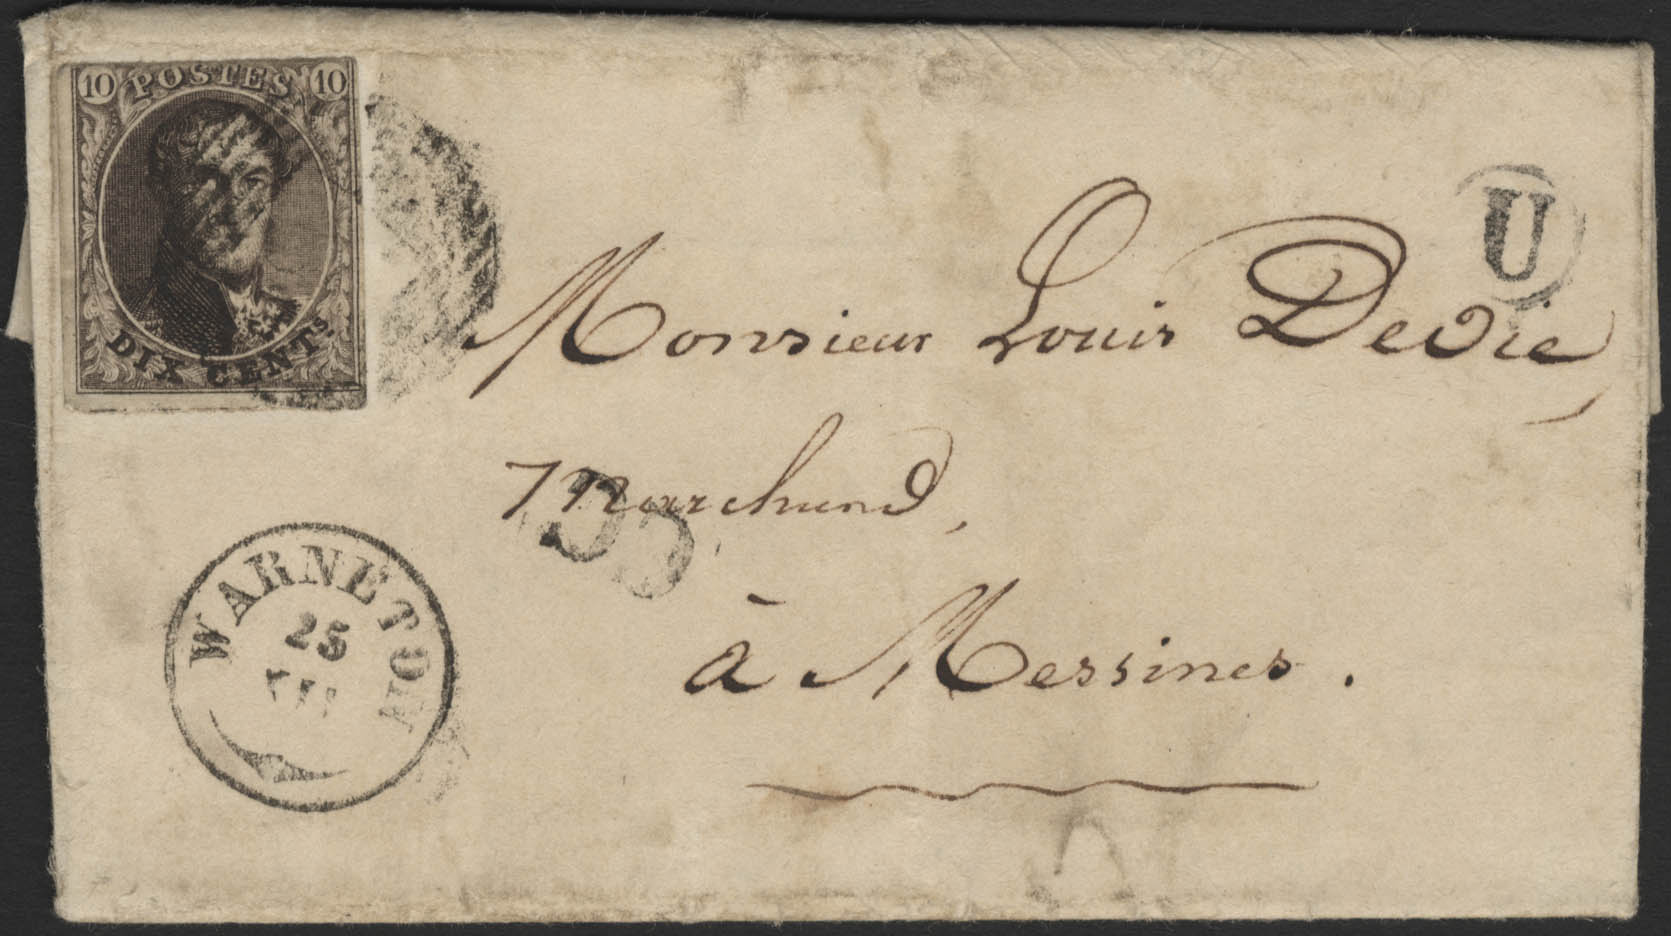 10 POSTES 10
DIX CENTS
U
Monsieur Louis Devie
Marchand,
à Messines.
WARNETON
25